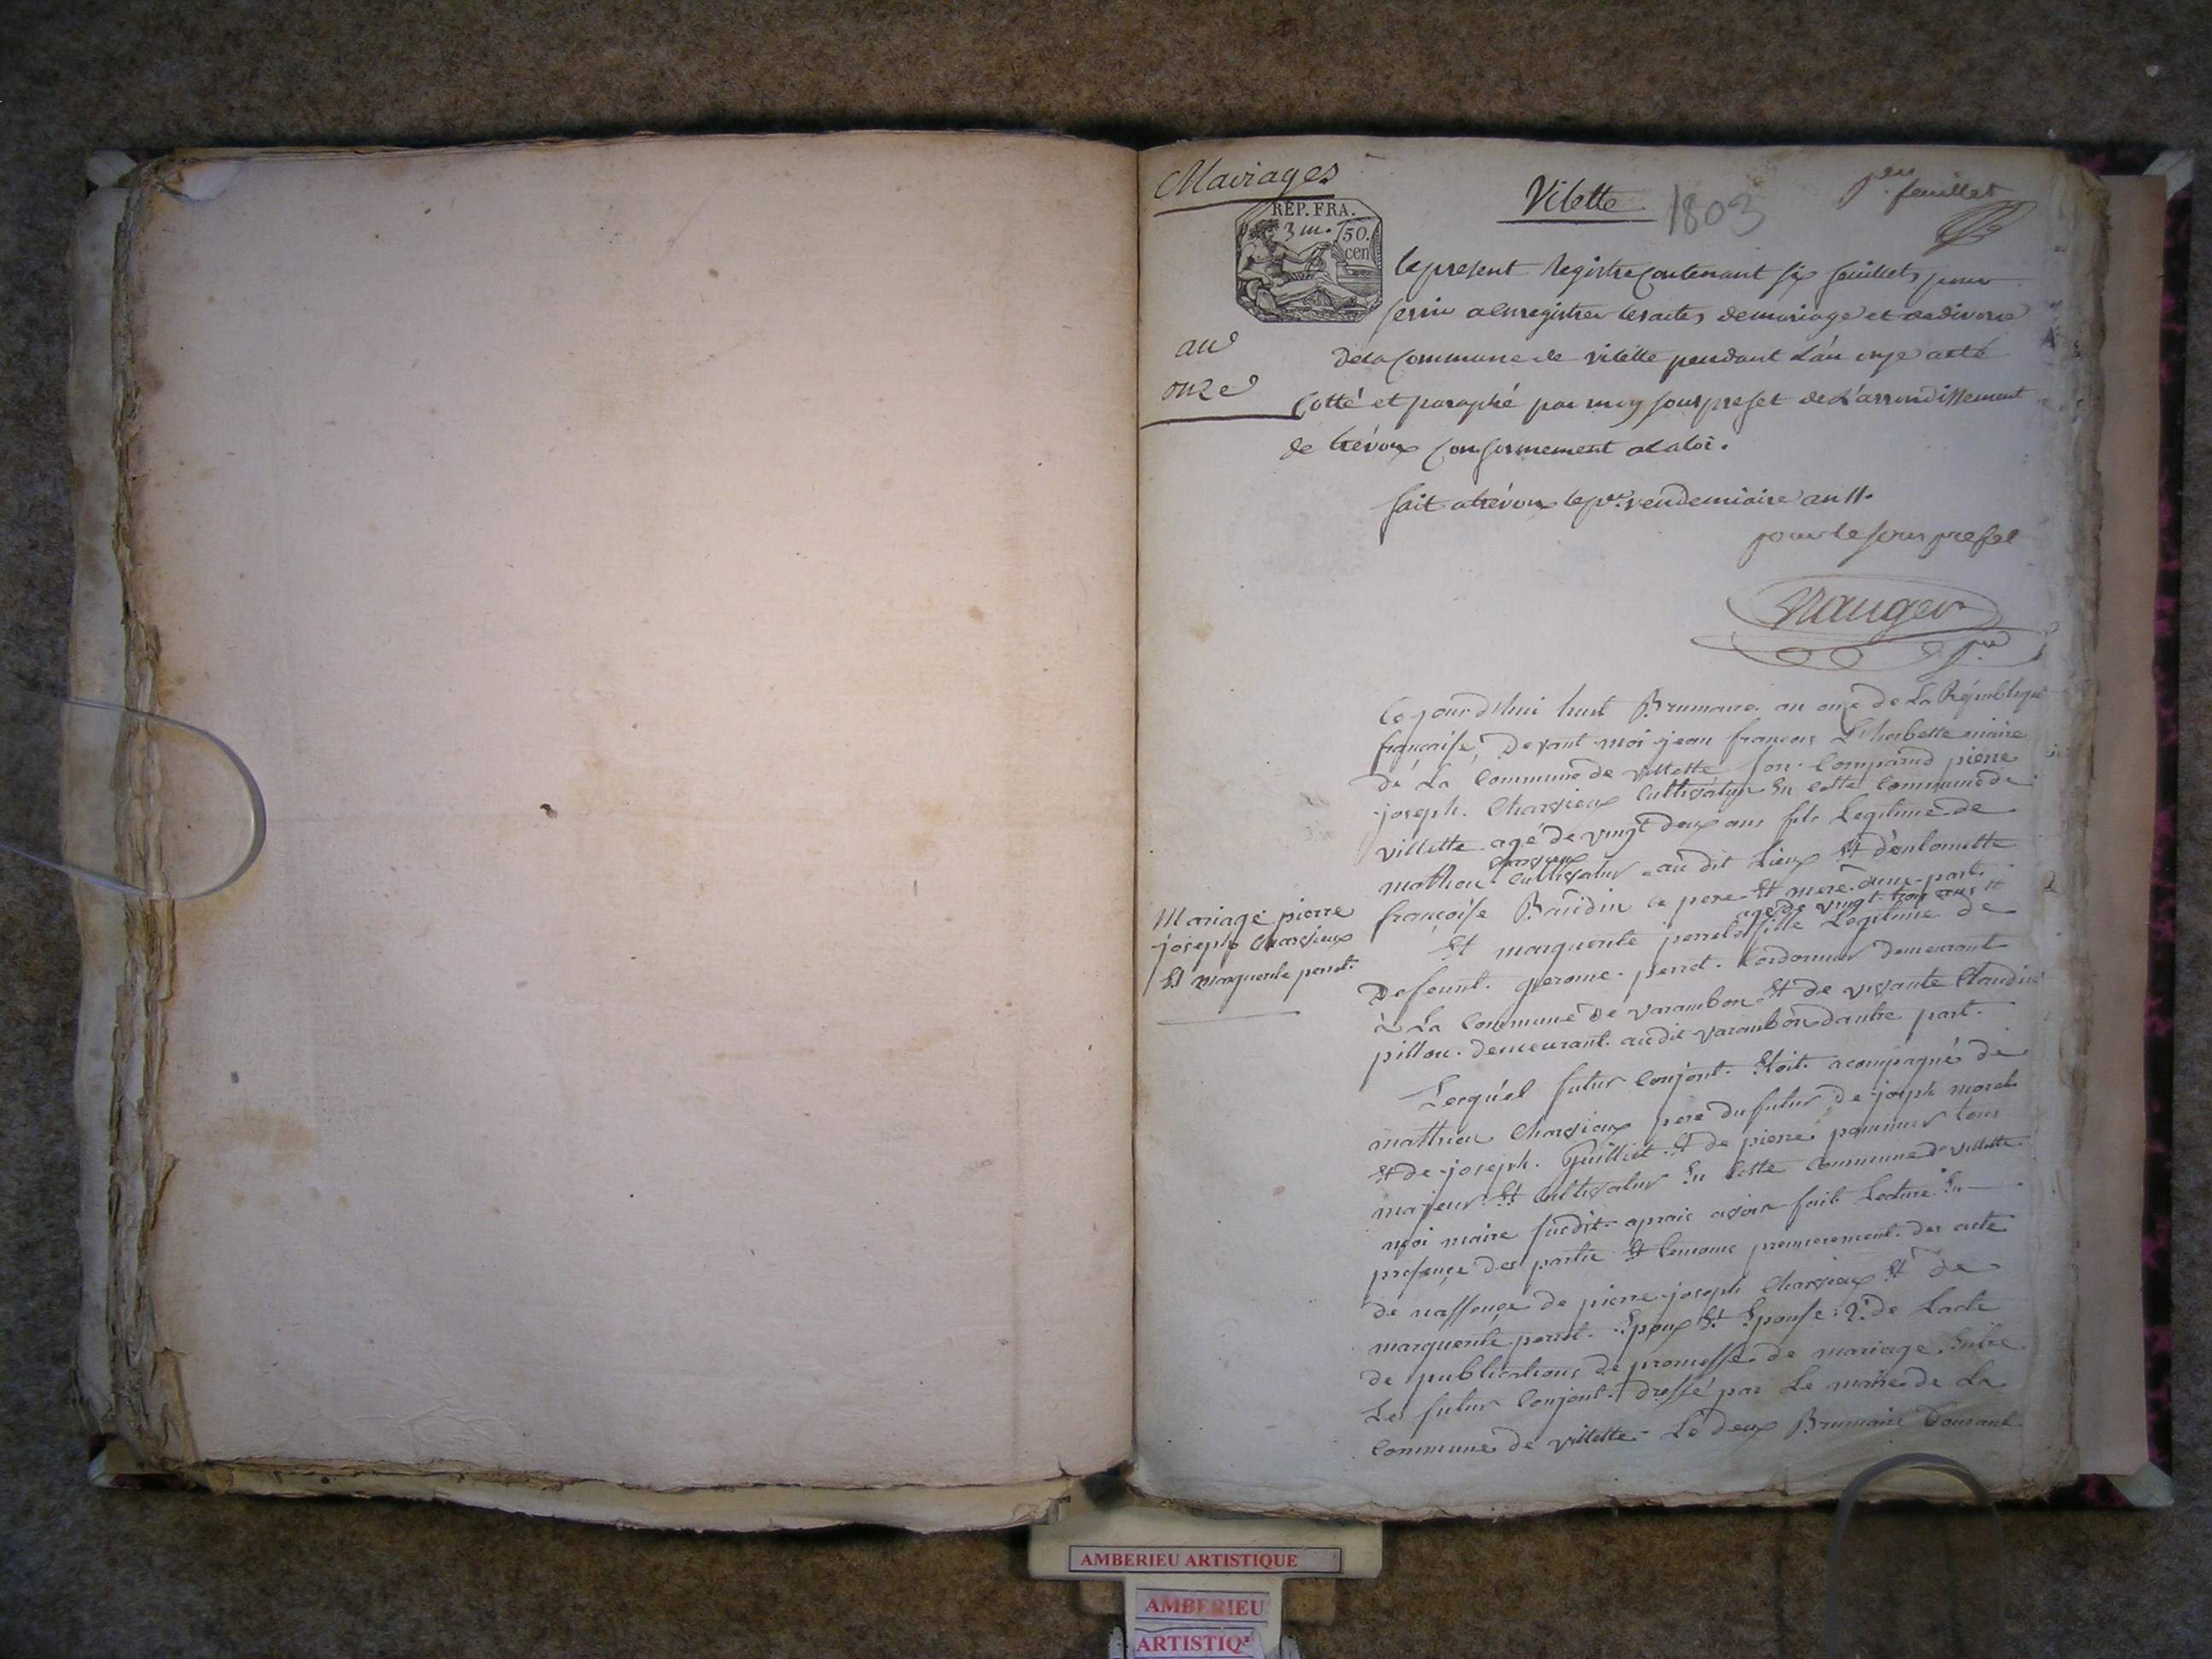 Mariages
Vilette
1803
pr feuillet
REP. FRA.
3 m. 50.
cen
an
onze
le present Registre Contenant six feuillets pour
servir a Enregistrer les actes de mariage et de divorce
de la Commune de vilette pendant L'an onze a été
Cotté et paraphé par moy sous prefet de L'arrondissement
de trévoux Conformement a la loi.
fait a trévoux le pr. vendemiaire an 11.
pour le sous prefet
Mauger
Ce jourd'hui huit Brumaire an onze de La République
françoise, Devant moi jean françois L'horbette maire
de La Commune de Villette son Comparud pierre
joseph Charvieux Cultivateur En cette Commune de
villette agé de vingt deux ans fils Legitime de
charvieux
mathieu Cultivateur au dit Lieux Et d'entoinette
françoise Baudin ce pere Et mere d'une part.
agé de vingt trois ans
Et marguerite perret fille Legitime de
Defeunt gerome perret Cordonnier demeurant
à La Commune De Varambon Et de vivante Claudine
pillon demeurant au dit Varambon d'autre part.
Mariage pierre
joseph Charvieux
Et marguerite perret.
Lesquel futur Conjont Etoit acompagné de
mathieu Charvieux pere du futur de joseph morel
Et de joseph Guilliet Et de pierre pommier tous
majeur Et Cultivateur En Cette Commune de Villette
moi maire sudit aprais avoir fait Lecture En
presence des partie Et temoins premierement des acte
de nassence de pierre joseph Charvieux Et de
marguerite perret Epoux Et Epouse 2° de Lacte
de publications de promesse de mariage Entre
Les futur Conjont dressé par Le maire de La
Commune de Villette Le deux Brumaire Courant
AMBERIEU ARTISTIQUE
AMBERIEU
ARTISTIQ